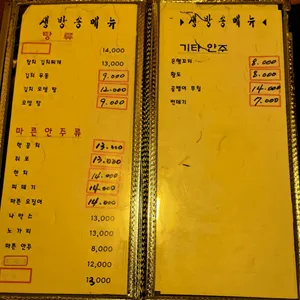 생방송메뉴
탕 류
14,000
참치 김치찌개 13,000
김치 우동 9.000
김치 오뎅 탕 12.000
오뎅 탕 9.000
마른안주류
먹 물 치 13.000
쥐 포 13.000
한 치 14.000
피 데 기 14.000
마른 오징어 14.000
나 막 스 13,000
노 가 리 13,000
마른 안주 8,000
12,000
13,000
생방송메뉴
기타안주
은행꼬치 8.000
황도 8.000
골뱅이 무침 14.000
번데기 7.000